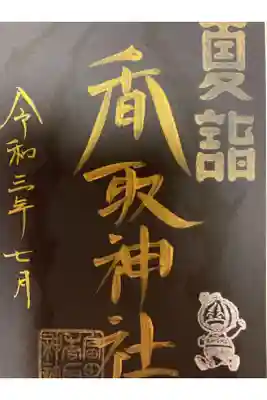 夏詣
香取神社
令和三年 七月